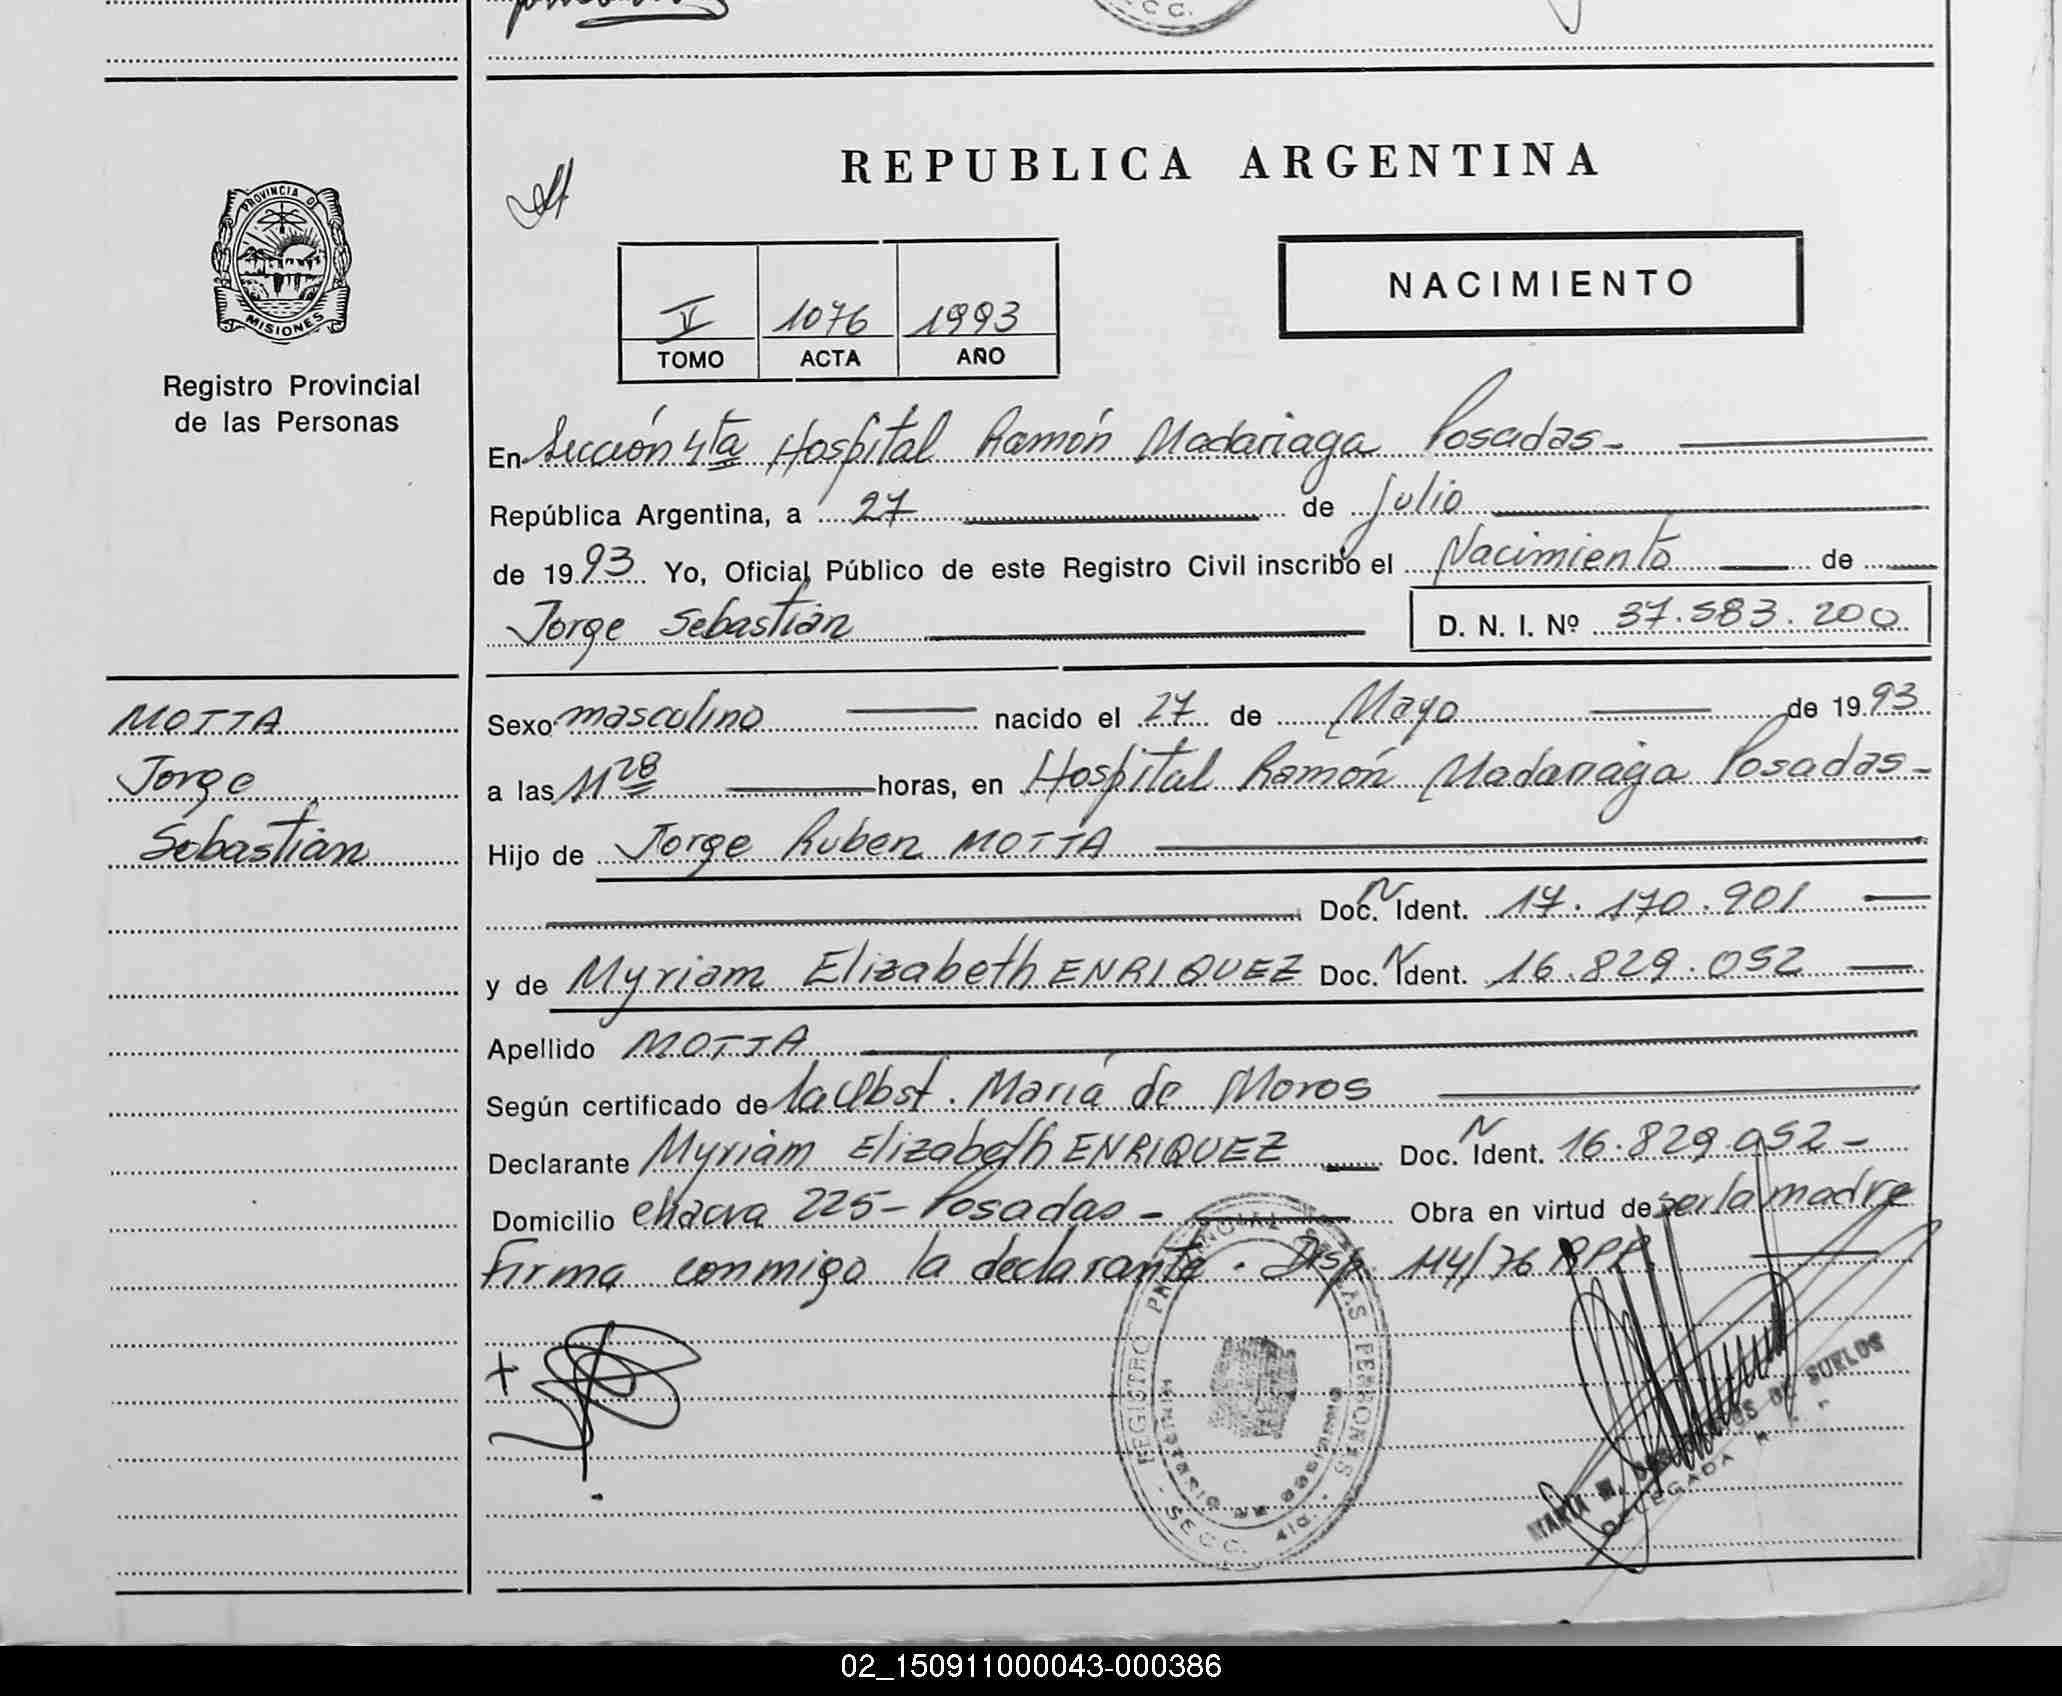 REPUBLICA ARGENTINA
PROVINCIA DE
MISIONES
Registro Provincial
de las Personas
NACIMIENTO
V 1076 1993
TOMO ACTA AÑO
En Sección 4ta Hospital Ramón Madariaga Posadas-
República Argentina, a 27 de julio
de 1993 Yo, Oficial Público de este Registro Civil inscribo el Nacimiento de
Jorge Sebastián D. N. I. Nº 37.583.200
MOTTA
Jorge
Sebastián
Sexo masculino nacido el 27 de Mayo de 1993
a las 11 28 horas, en Hospital Ramón Madariaga Posadas-
Hijo de Jorge Ruben MOTTA
Doc. N Ident. 17.170.901
y de Myriam Elizabeth ENRIQUEZ Doc. N Ident. 16.829.052
Apellido MOTTA
Según certificado de la Obst. María de Moros
Declarante Myriam Elizabeth ENRIQUEZ Doc. N Ident. 16.829.052-
Domicilio chacra 225- Posadas- Obra en virtud de ser la madre
firma conmigo la declarante. Disp. 114/76 RPP.
REGISTRO PROVINCIAL DE LAS PERSONAS
SECC. 4ta.
MARIA M. DE SUELOS
DELEGADA
02_150911000043-000386